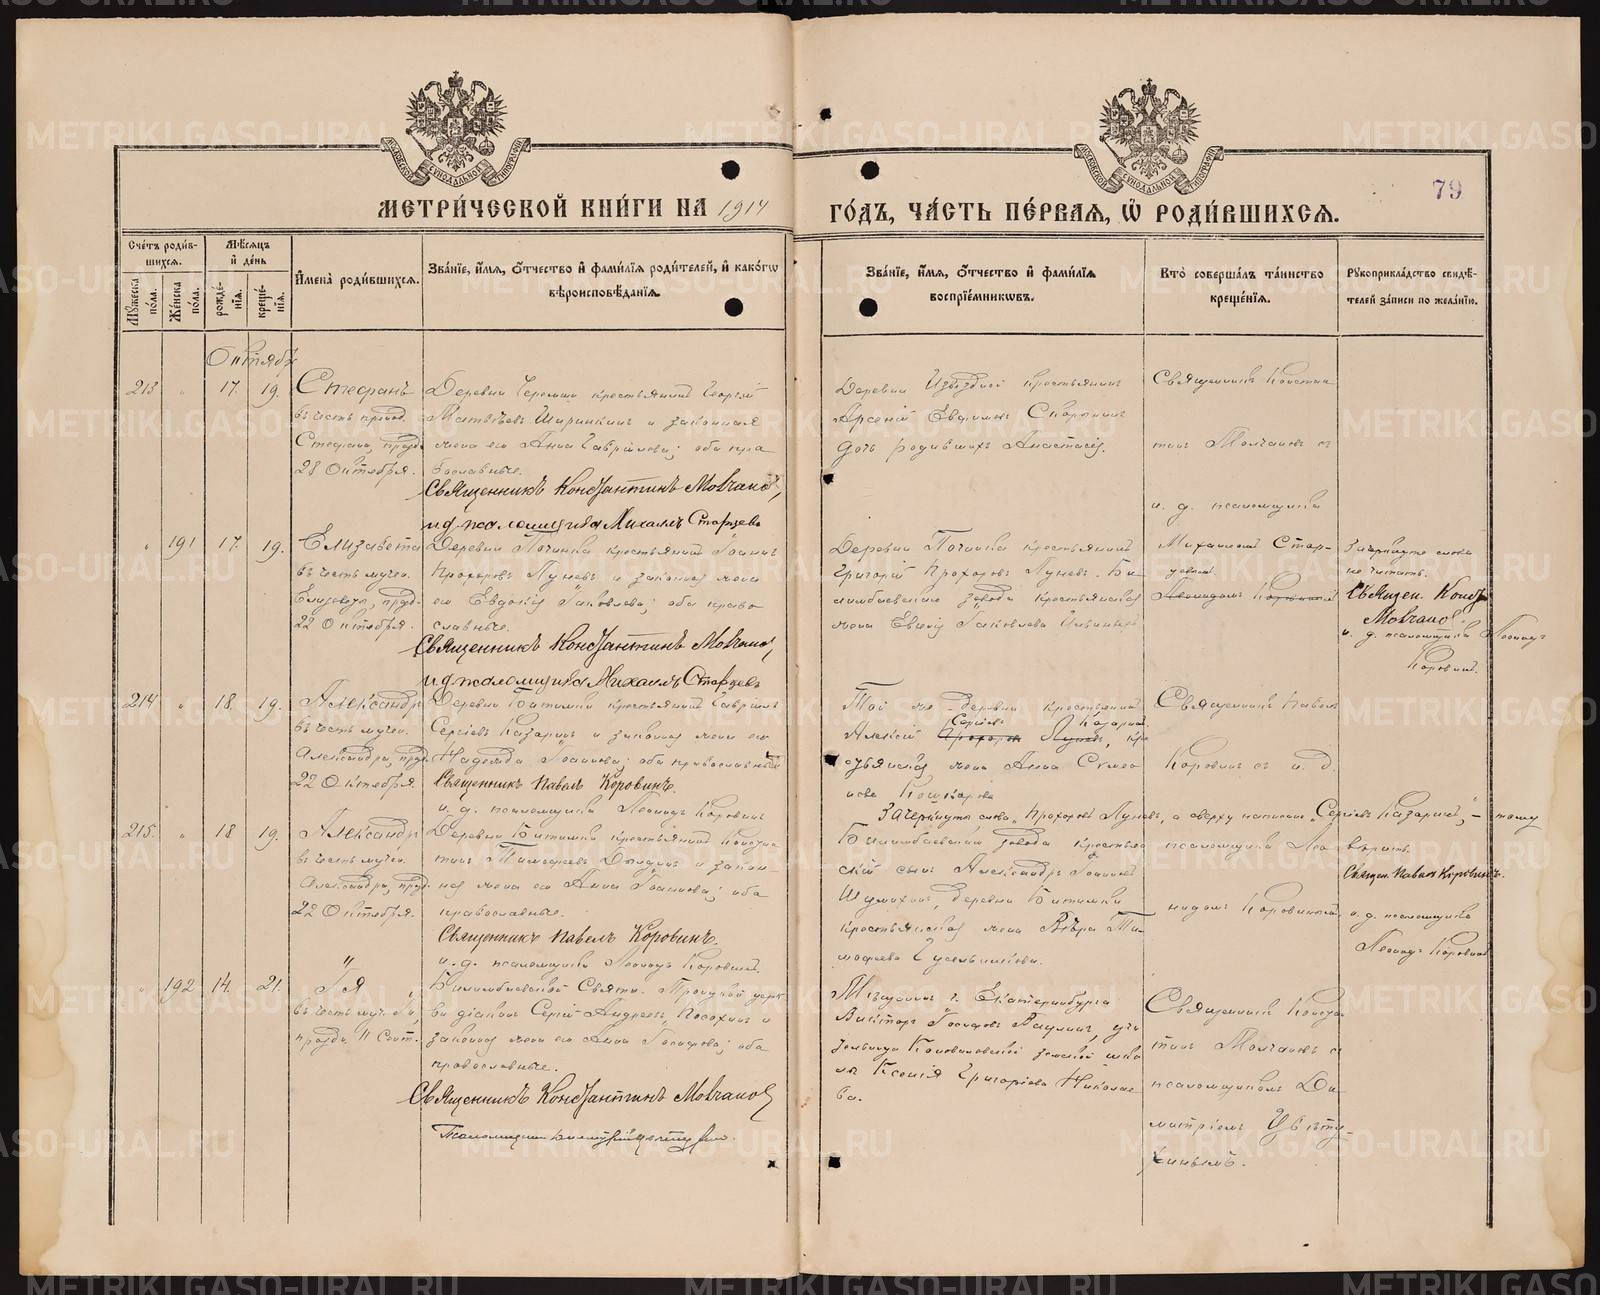 МЕТРИЧЕСКОЙ КНИГИ НА 1914
ГОДЪ, ЧАСТЬ ПЕРВАЯ, Ѡ РОДИВШИХСЯ.
79
Счетъ родив-
шихся.
Мужеска пола.
Женска пола.
Мѣсяцъ
и день
рожде-
нія.
креще-
нія.
Имена родившихся.
Званіе, имя, отчество и фамилія родителей, и какогѡ
вѣроисповѣданія.
Званіе, имя, отчество и фамилія
воспріемниковъ.
Кто совершалъ таинство
крещенія.
Рукоприкладство свидѣ-
телей записи по желанію.
Октябрь
213 " 17. 19.
Стефанъ
въ честь
Стефана, празд.
28 Октября.
Деревни крестьянинъ Георгій
Матвѣевъ Ширинкинъ и законная
жена его Анна Гавріилова; оба пра
вославные.
Священникъ Константинъ Молчановъ,
и д псаломщика Михаилъ Старцевъ
Деревни крестьянинъ
Арсеній Евфимовъ
дочь родившихъ Анастасія.
Священникъ Констан
тинъ Молчановъ съ
и. д. псаломщика
Михаиломъ Стар-
цевымъ
" 191 17. 19.
Елизавета
въ честь мучен.
Елизаветы, празд.
22 Октября.
Деревни Починка крестьянинъ Іоаннъ
Прохоровъ Луневъ и законная жена
его Евдокія Іаковлева; оба право
славные.
Священникъ Константинъ Молчановъ,
и д псаломщика Михаилъ Старцевъ
Деревни Починка крестьянинъ
Григорій Прохоровъ Луневъ. Би-
лимбаевскаго завода крестьянская
жена Іаковлева
Леонидомъ Коровинымъ
Зачеркнутые слова
не читать.
Священ. Конст
Молчановъ
и. д. псаломщика Леонидъ
Коровинъ.
214 " 18. 19.
Александръ
въ честь мучен.
Александра, празд.
22 Октября.
Деревни Битимки крестьянинъ Гавріилъ
Сергіевъ Казаринъ и законная жена его
Надежда Іоаннова; оба православные
Священникъ Павелъ Коровинъ.
и. д. псаломщика Леонидъ Коровинъ
Той же деревни крестьянинъ
Сергіевъ Казаринъ
Алексій Прохоровъ Луневъ, кре
стьянская жена Анна Симео
нова
Священникъ Павелъ
Коровинъ съ и. д.
псаломщика Лео
нидомъ Коровинымъ
Зачеркнуты слова „Прохоровъ Луневъ, а сверху написано „Сергіевъ Казаринъ", – тому
вѣрить.
Священ. Павелъ Коровинъ.
и. д. псаломщика
Леонидъ Коровинъ
215. " 18 19.
Александръ
въ честь мучен.
Александра, празд.
22 Октября.
Деревни Битимки крестьянинъ Констан
тинъ Тимофеевъ и закон-
ная жена его Анна Іоаннова; оба
православные.
Священникъ Павелъ Коровинъ.
и. д. псаломщика Леонидъ Коровинъ.
Билимбаевскаго завода крестьян
скій сынъ Александръ Іоанновъ
деревни Битимки
крестьянская жена Вѣра Ти-
мофеева
" 192 14. 21.
Ія
въ честь муч. Іи,
празд. 11 Сент.
Билимбаевской Свято-Троицкой церк
ви діаконъ Сергій Андреевъ и
законная жена его Анна; оба
православные.
Священникъ Константинъ Молчановъ
Мѣщанинъ г. Екатеринбурга
Викторъ учи
тельница земской шко
лы Ксенія Григоріева Николае
ва.
Священникъ Констан
тинъ Молчановъ съ
псаломщикомъ Ди-
митріемъ Цвѣту-
хинымъ.